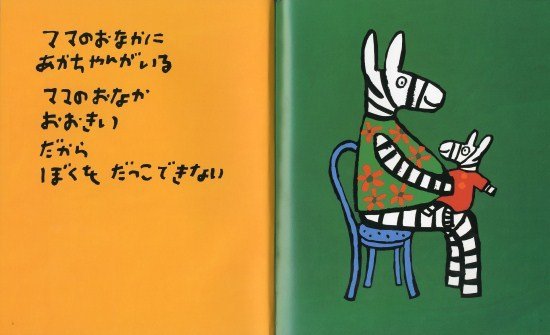 ママのおなかに
あかちゃんがいる
ママのおなか
おおきい
だから
ぼくを だっこできない